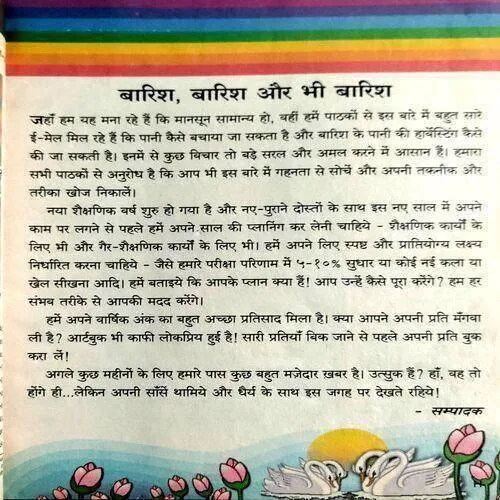 बारिश, बारिश और भी बारिश
जहाँ हम यह मना रहे हैं कि मानसून सामान्य हो, वहीं हमें पाठकों से इस बारे में बहुत सारे
ई-मेल मिल रहे हैं कि पानी कैसे बचाया जा सकता है और बारिश के पानी की हार्वेस्टिंग कैसे
की जा सकती है। इनमें से कुछ विचार तो बड़े सरल और अमल करने में आसान हैं। हमारा
सभी पाठकों से अनुरोध है कि आप भी इस बारे में गहनता से सोचें और अपनी तकनीक और
तरीका खोज निकालें।
नया शैक्षणिक वर्ष शुरु हो गया है और नए-पुराने दोस्तों के साथ इस नए साल में अपने
काम पर लगने से पहले हमें अपने साल की प्लानिंग कर लेनी चाहिये - शैक्षणिक कार्यों के
लिए भी और गैर-शैक्षणिक कार्यों के लिए भी। हमें अपने लिए स्पष्ट और प्रातियोग्य लक्ष्य
निर्धारित करना चाहिये - जैसे हमारे परीक्षा परिणाम में ५-१०% सुधार या कोई नई कला या
खेल सीखना आदि। हमें बताइये कि आपके प्लान क्या हैं! आप उन्हें कैसे पूरा करेंगे? हम हर
संभव तरीके से आपकी मदद करेंगे।
हमें अपने वार्षिक अंक का बहुत अच्छा प्रतिसाद मिला है। क्या आपने अपनी प्रति मँगवा
ली है? आर्टबुक भी काफी लोकप्रिय हुई है! सारी प्रतियाँ बिक जाने से पहले अपनी प्रति बुक
करा लें!
अगले कुछ महीनों के लिए हमारे पास कुछ बहुत मज़ेदार ख़बर है। उत्सुक हैं? हाँ, वह तो
होंगे ही...लेकिन अपनी साँसें थामिये और धैर्य के साथ इस जगह पर देखते रहिये!
- सम्पादक